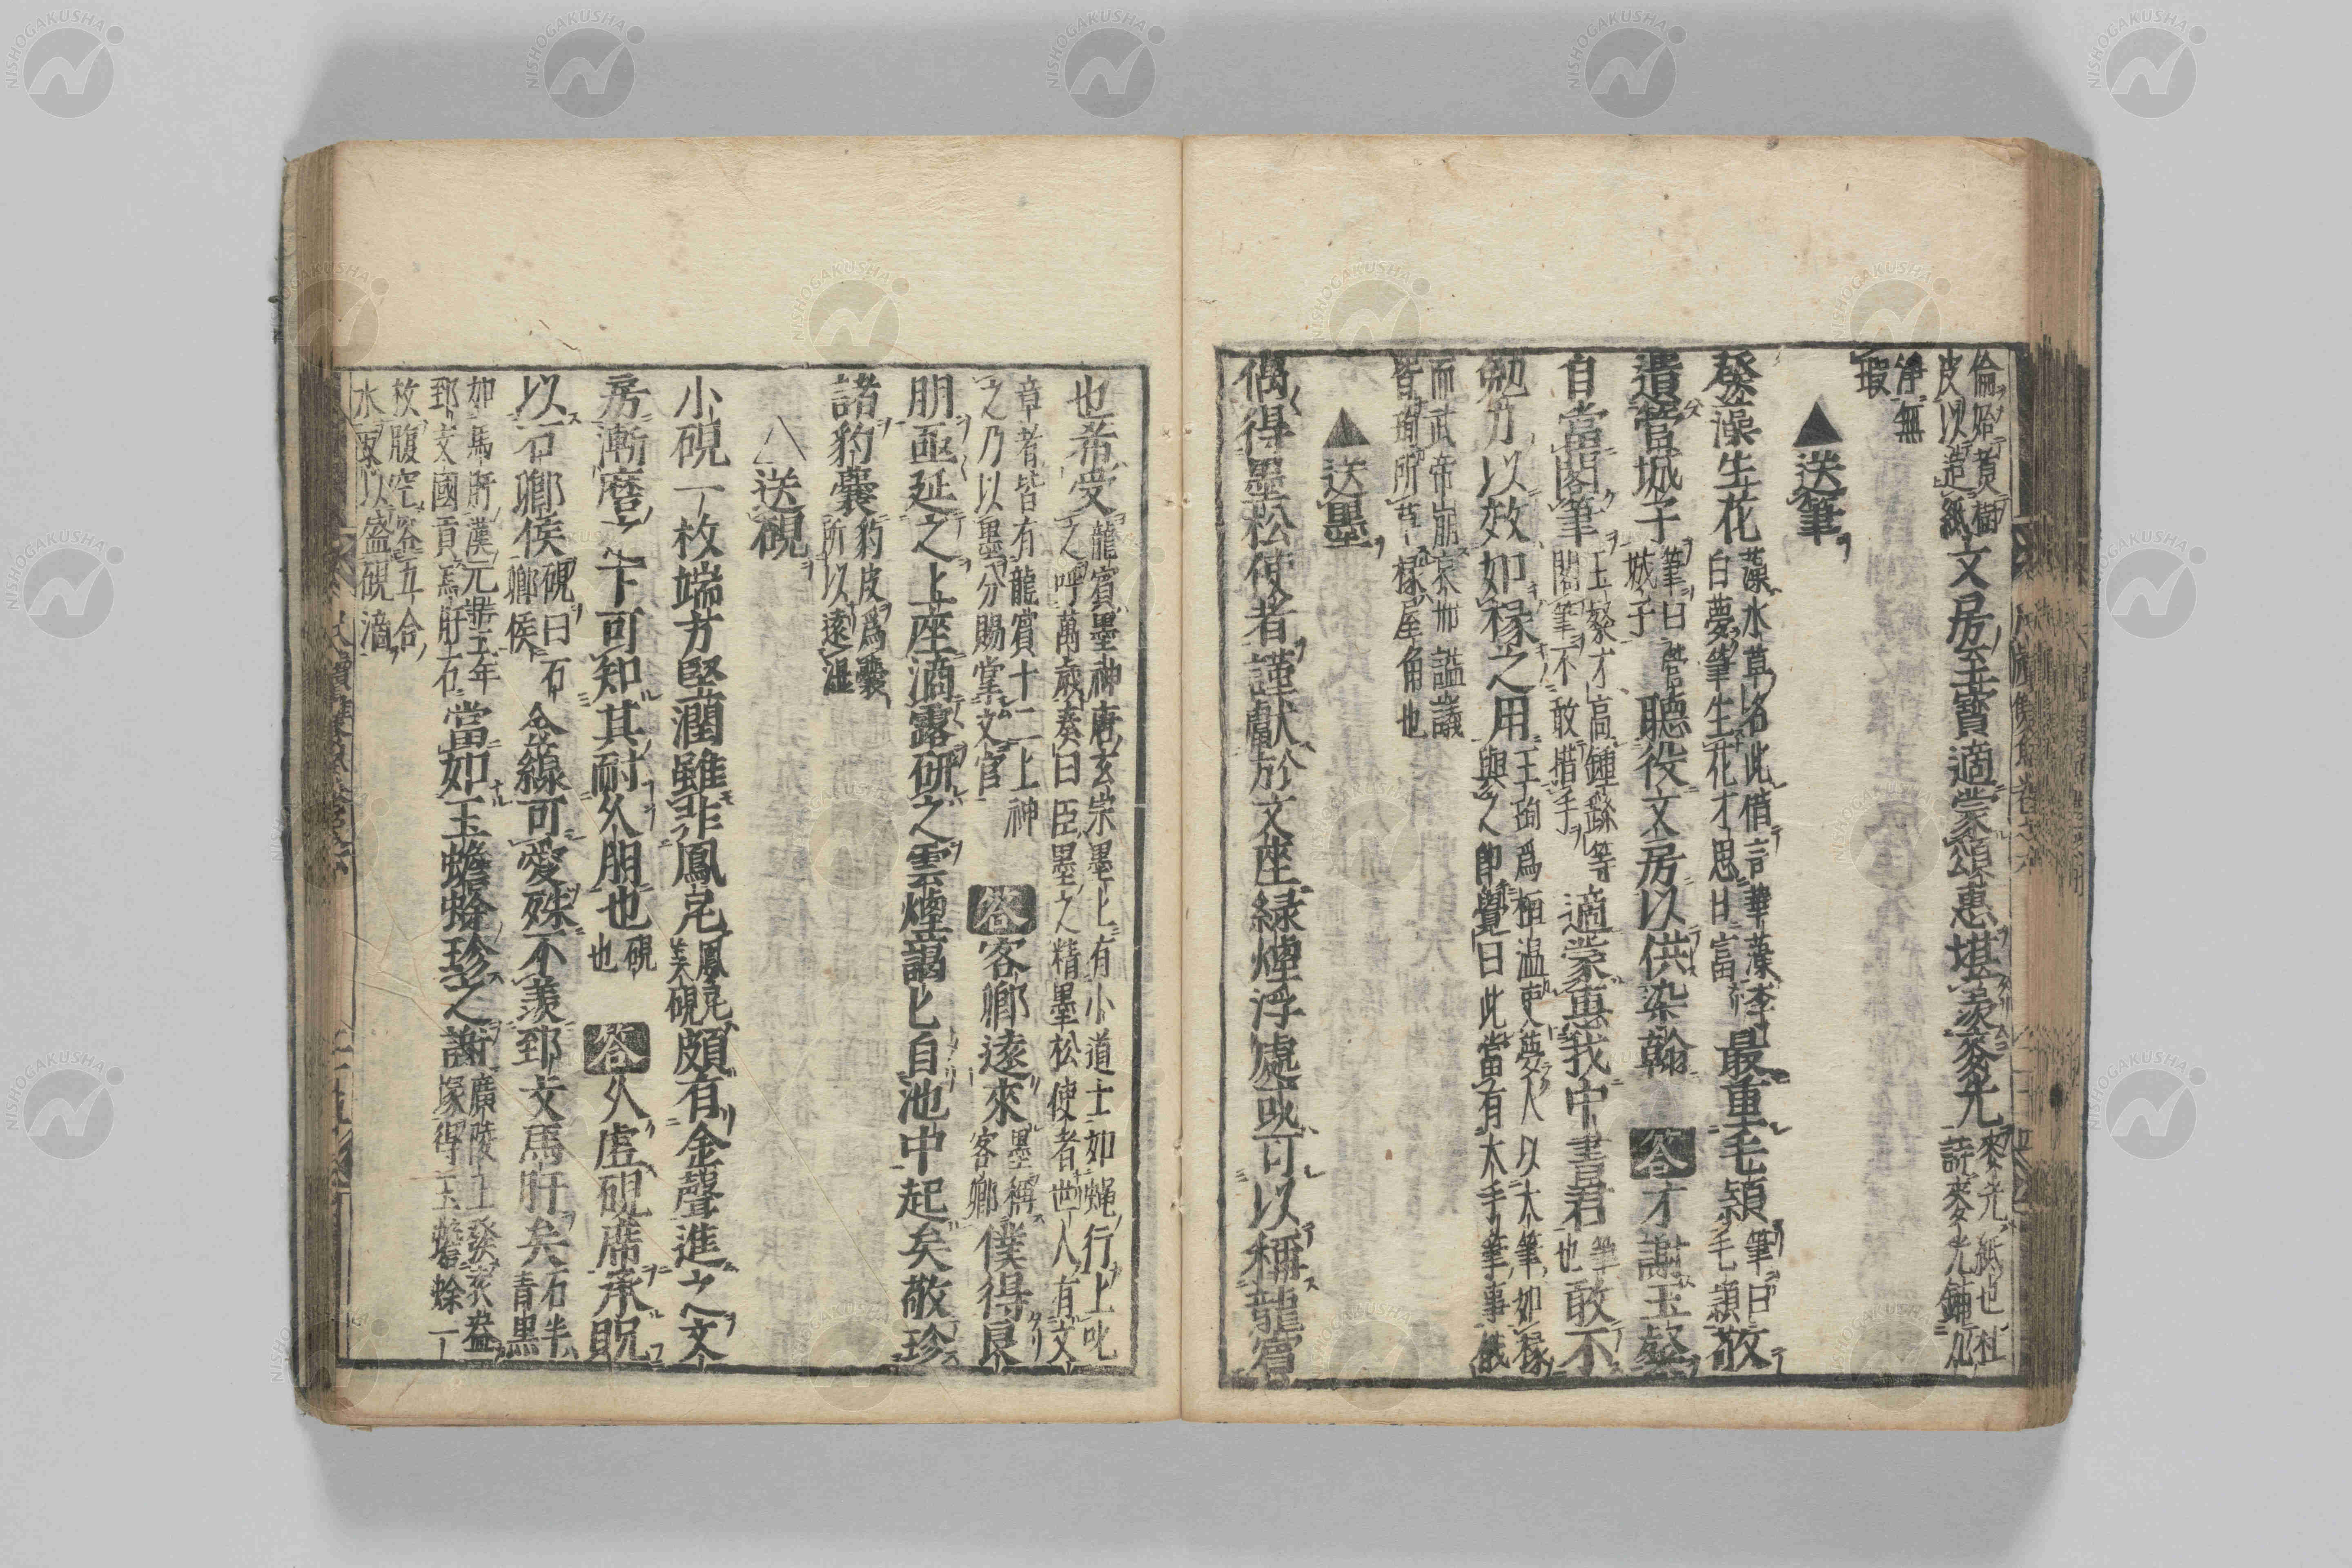 倫始煑樹
皮以造紙
文房至寶適蒙頒惠堪羨麥光
麥光紙也杜
詩麥光鋪几
淨無
瑕
▲送筆
發藻生花
藻水草名此借言華藻李
白夢筆生花才思日富
最重毛頴
筆曰
毛頴
敬
遣管城子
筆曰管
城子
聽役文房以供染翰
答
才謝王粲
自當閣筆
王粲才高鍾繇等
閣筆不敢措手
適蒙惠我中書君
筆
也
敢不
勉力以效如椽之用
王珣爲桓温吏夢人以大筆如椽
與之即覺曰此當有大手筆事俄
而武帝崩哀册謚議
皆珣所草椽屋角也
▲送墨
偶得墨松使者謹獻於文座緑煙浮處或可以稱龍賓
也希受
龍賓墨神唐玄宗墨上有小道士如蝿行上叱
之呼萬歳奏曰臣墨之精墨松使者世人有文
章者皆有龍賓十二上神
之乃以墨分賜掌文官
答
客卿遠來
墨稱
客卿
僕得良
朋亟延之上座滴露研之雲煙靄匕自池中起矣敬珍
諸豹嚢
豹皮爲嚢
所以遠濕
△送硯
小硯一枚端方堅潤雖非鳳咮
鳳咮
美硯
頗有金聲進之文
房漸磨之下可知其耐久朋也
硯
也
答
久虚硯席承貺
以石卿侯
硯曰石
卿侯
金線可愛殊不羨郅支馬肝矣
石半
青黒
如馬肝漢元鼎五年
郅支國貢馬肝石
當如玉蟾蜍珍之謝
廣陵王發衮盎
塚得玉蟾蜍一
枚腹空容五合
水取以盛硯滴